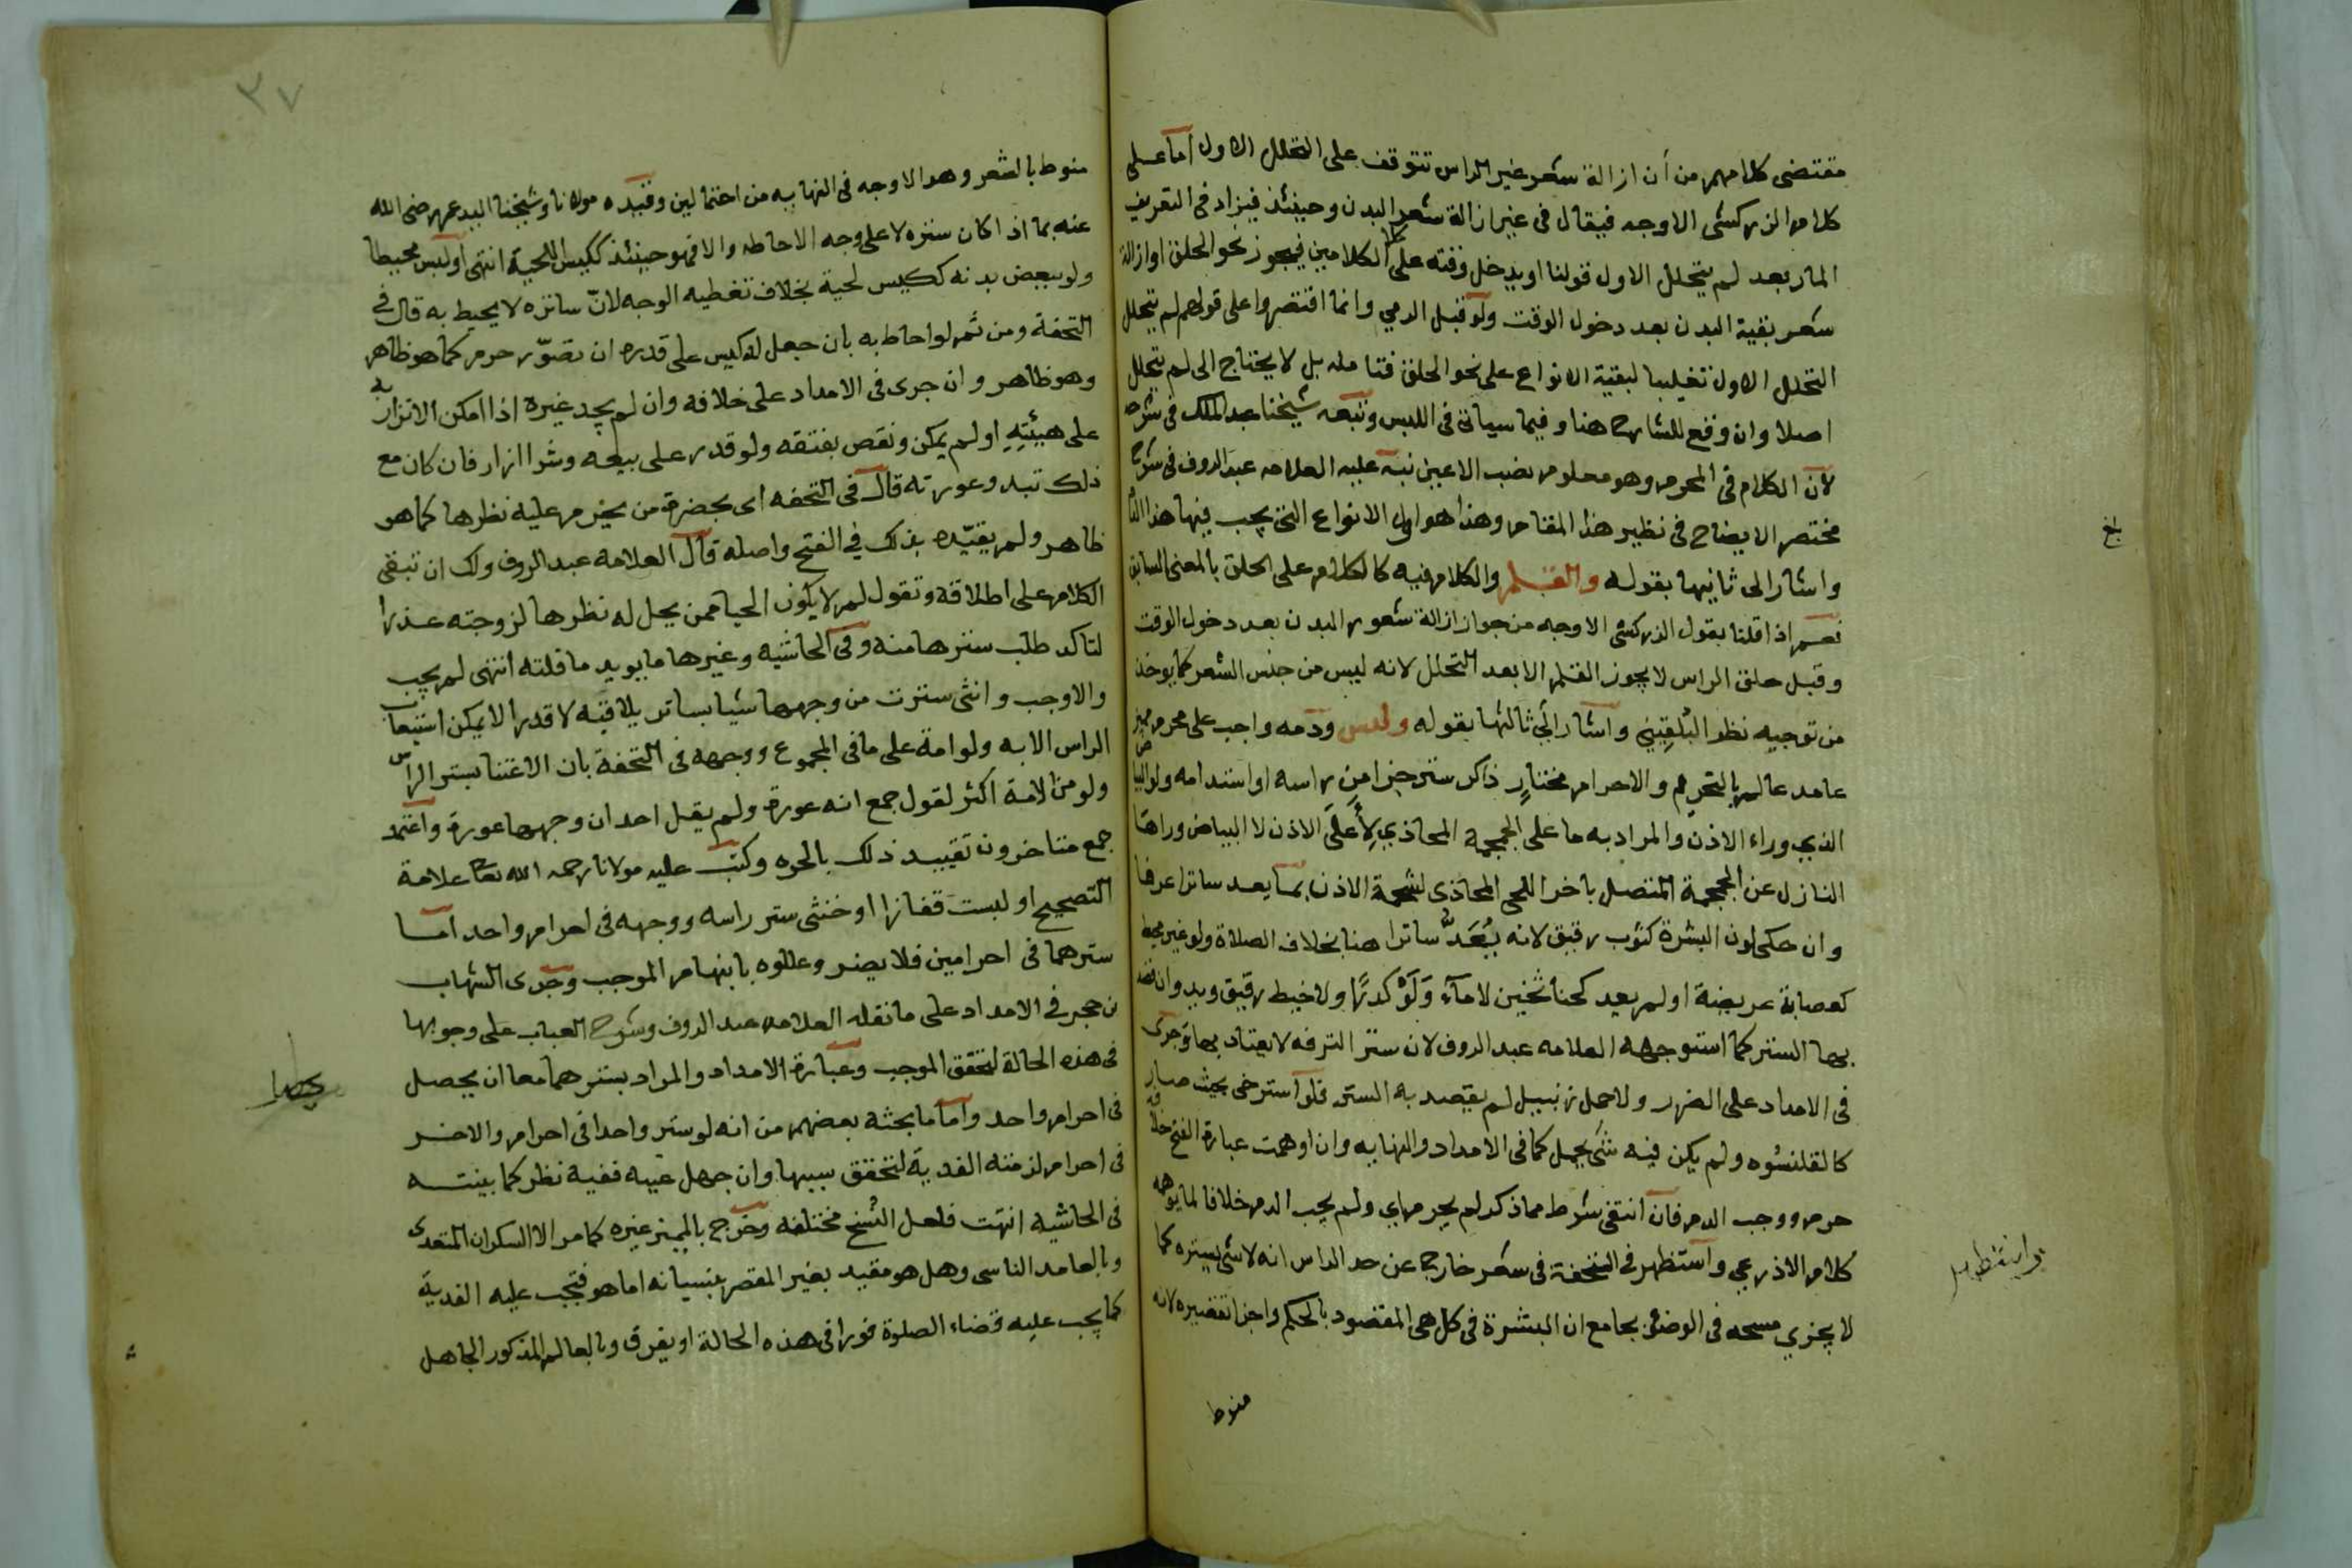 مقتضى كلامهم من أن ازالة شعر غير الراس تتوقف على التحلل الاول أما على
كلام الزركشى الاوجه فيقال فى غير ازالة شعر البدن وحينئذ فيزاد فى التعريف
المار بعد لم يتحلل الاول قولنا او يدخل وقته على الكلامين فيجوز نحو الحلق او ازالة
شعر بقية البدن بعد دخول الوقت ولو قبل الرمي وانما اقتصروا على قولهم لم يتحلل
التحلل الاول تغليبا لبقية الانواع على نحو الحلق فتامله بل لا يحتاج الى لم يتحلل
اصلا وان وقع للشارح هنا وفيما سياتى فى اللبس وتبعه شيخنا عبد الملك فى شرحه
لأن الكلام فى المحرم وهو معلوم نصب الاعين نبه عليه العلامه عبد الروف فى شرح
مختصر الايضاح فى نظير هذا المقام وهذا هو اول الانواع التى يجب فيها هذا
واشار الى ثانيها بقوله والقلم والكلام فيه كالكلام على الحلق بالمعنى السابق
نعم اذا قلنا بقول الزركشى الاوجه من جواز ازالة شعور البدن بعد دخول الوقت
وقبل حلق الراس لا يجوز القلم الا بعد التحلل لانه ليس من جنس الشعر كما يوخذ
من توجيه نظر البلقيني واشار الي ثالثها بقوله ولبس ودمه واجب على محرم مميز
عامد عالم بالتحريم والاحرام مختارٍ ذاكر ستر جزا من راسه او استدامه ولو البيا
ض
الذي وراء الاذن والمراد به ما على الجمجمة المحاذي لِأَعلَى الاذن لا البياض وراها
النازل عن الجمجمة المتصل باخر اللحى المحاذى لشحمة الاذن بما يعد ساترا عرفا
وان حكى لون البشرة كثوب رقيق لانه يُعَدُّ ساترا هنا بخلاف الصلاة ولو غير محيط
كعصابة عريضة او لم يعد كحنا ثخين لا ماء وَلَوْ كدرًا ولا خيط رقيق ويد وان قصد
بها الستر كما استوجهه العلامه عبد الروف لان ستر الترفه لا يعتاد بها وجرى
فى الامداد على الضرر ولا حمل زنبيل لم يقصد به الستر فلو استرخى بحيث صار
كالقلنسوه ولم يكن فيه شئ يحمل كما فى الامداد والنهايه وان اوهمت عبارة الفتح خلافه
حرم ووجب الدم فان انتفى شرط مما ذكر لم يحرم اي ولم يجب الدم خلافا لما يوهمه
كلام الاذرعي واستظهر فى التحفة فى شعر خارج عن حد الراس انه لا شئ بستره كما
لا يجزي مسحه فى الوضوء بجامع ان البشرة فى كل هى المقصود بالحكم واجزا تقصيره لانه
منوط
٣٧
منوط بالشعر وهو الاوجه فى النهايه من احتمالين وقيده مولانا وشيخنا السيد عمر رضى الله
عنه بما اذا كان ستره لا على وجه الاحاطه والا فهو حينئذ ككيس اللحية انتهى او لبس محيطا
ولو ببعض بدنه ككيس لحية بخلاف تغطيه الوجه لانّ ساتره لا يحيط به قال في
التحفة ومن ثم لو احاط به بان جعل له كيس على قدره ان تصوّر حرم كما هو ظاهر
وهو ظاهر وان جرى فى الامداد على خلافه وان لم يجد غيره اذا امكن الاتزار به
على هيئتهِ او لم يمكن ونقص بفتقه ولو قدر على بيعه وشرا ازار فان كان مع
ذلك تبدو عورته قال فى التحفه اى بحضرة من يحرم عليه نظرها كما هو
ظاهر ولم يقيّده بذلك في الفتح واصله قال العلامة عبد الروف ولك ان تبقى
الكلام على اطلاقه وتقول لم لا يكون الحيا ممن يحل له نظرها لزوجته عذرا
لتاكد طلب سترها منه وفى الحاشيه وغيرها ما يويد ما قلته انتهى لم يجب
والا وجب وانثى سترت من وجهها شيا بساتر يلاقيه لا قدرا لا يمكن استيعاب
الراس الا به ولو امة على ما فى المجموع ووجهه فى التحفة بان الاعتنا بستر الراس
ولو من الامة اكثر لقول جمع انه عورة ولم يقل احد ان وجهها عورة واعتمد
جمع متاخرون تقييد ذلك بالحره وكتب عليه مولانا رحمه الله تعالى علامة
التصحيح او لبست قفازا او خنثى ستر راسه ووجهه فى احرام واحد اما
سترهما فى احرامين فلا يضر وعللوه بابهام الموجب وجرى الشهاب
بن حجر في الامداد على ما نقله العلامه عبد الروف وشرح العباب على وجوبها
فى هذه الحالة لتحقق الموجب وعبارة الامداد والمراد بسترهما معا ان يحصل
فى احرام واحد واما ما بحثه بعضهم من انه لو ستر واحدا فى احرام والاخر
فى احرام لزمته الفدية لتحقق سببها وان جهل عينه ففيه نظر كما بينته
فى الحاشيه انتهت فلعل النُسَخ مختلفه وخرج بالمميز غيره كما مر الا السكران المتعدى
وبالعامد الناسى وهل هو مقيد بغير المقصر بنسيانه اما هو فتجب عليه الفدية
كما يجب عليه قضاء الصلوة فورا فى هذه الحالة او يفرق وبالعالم المذكور الجاهل